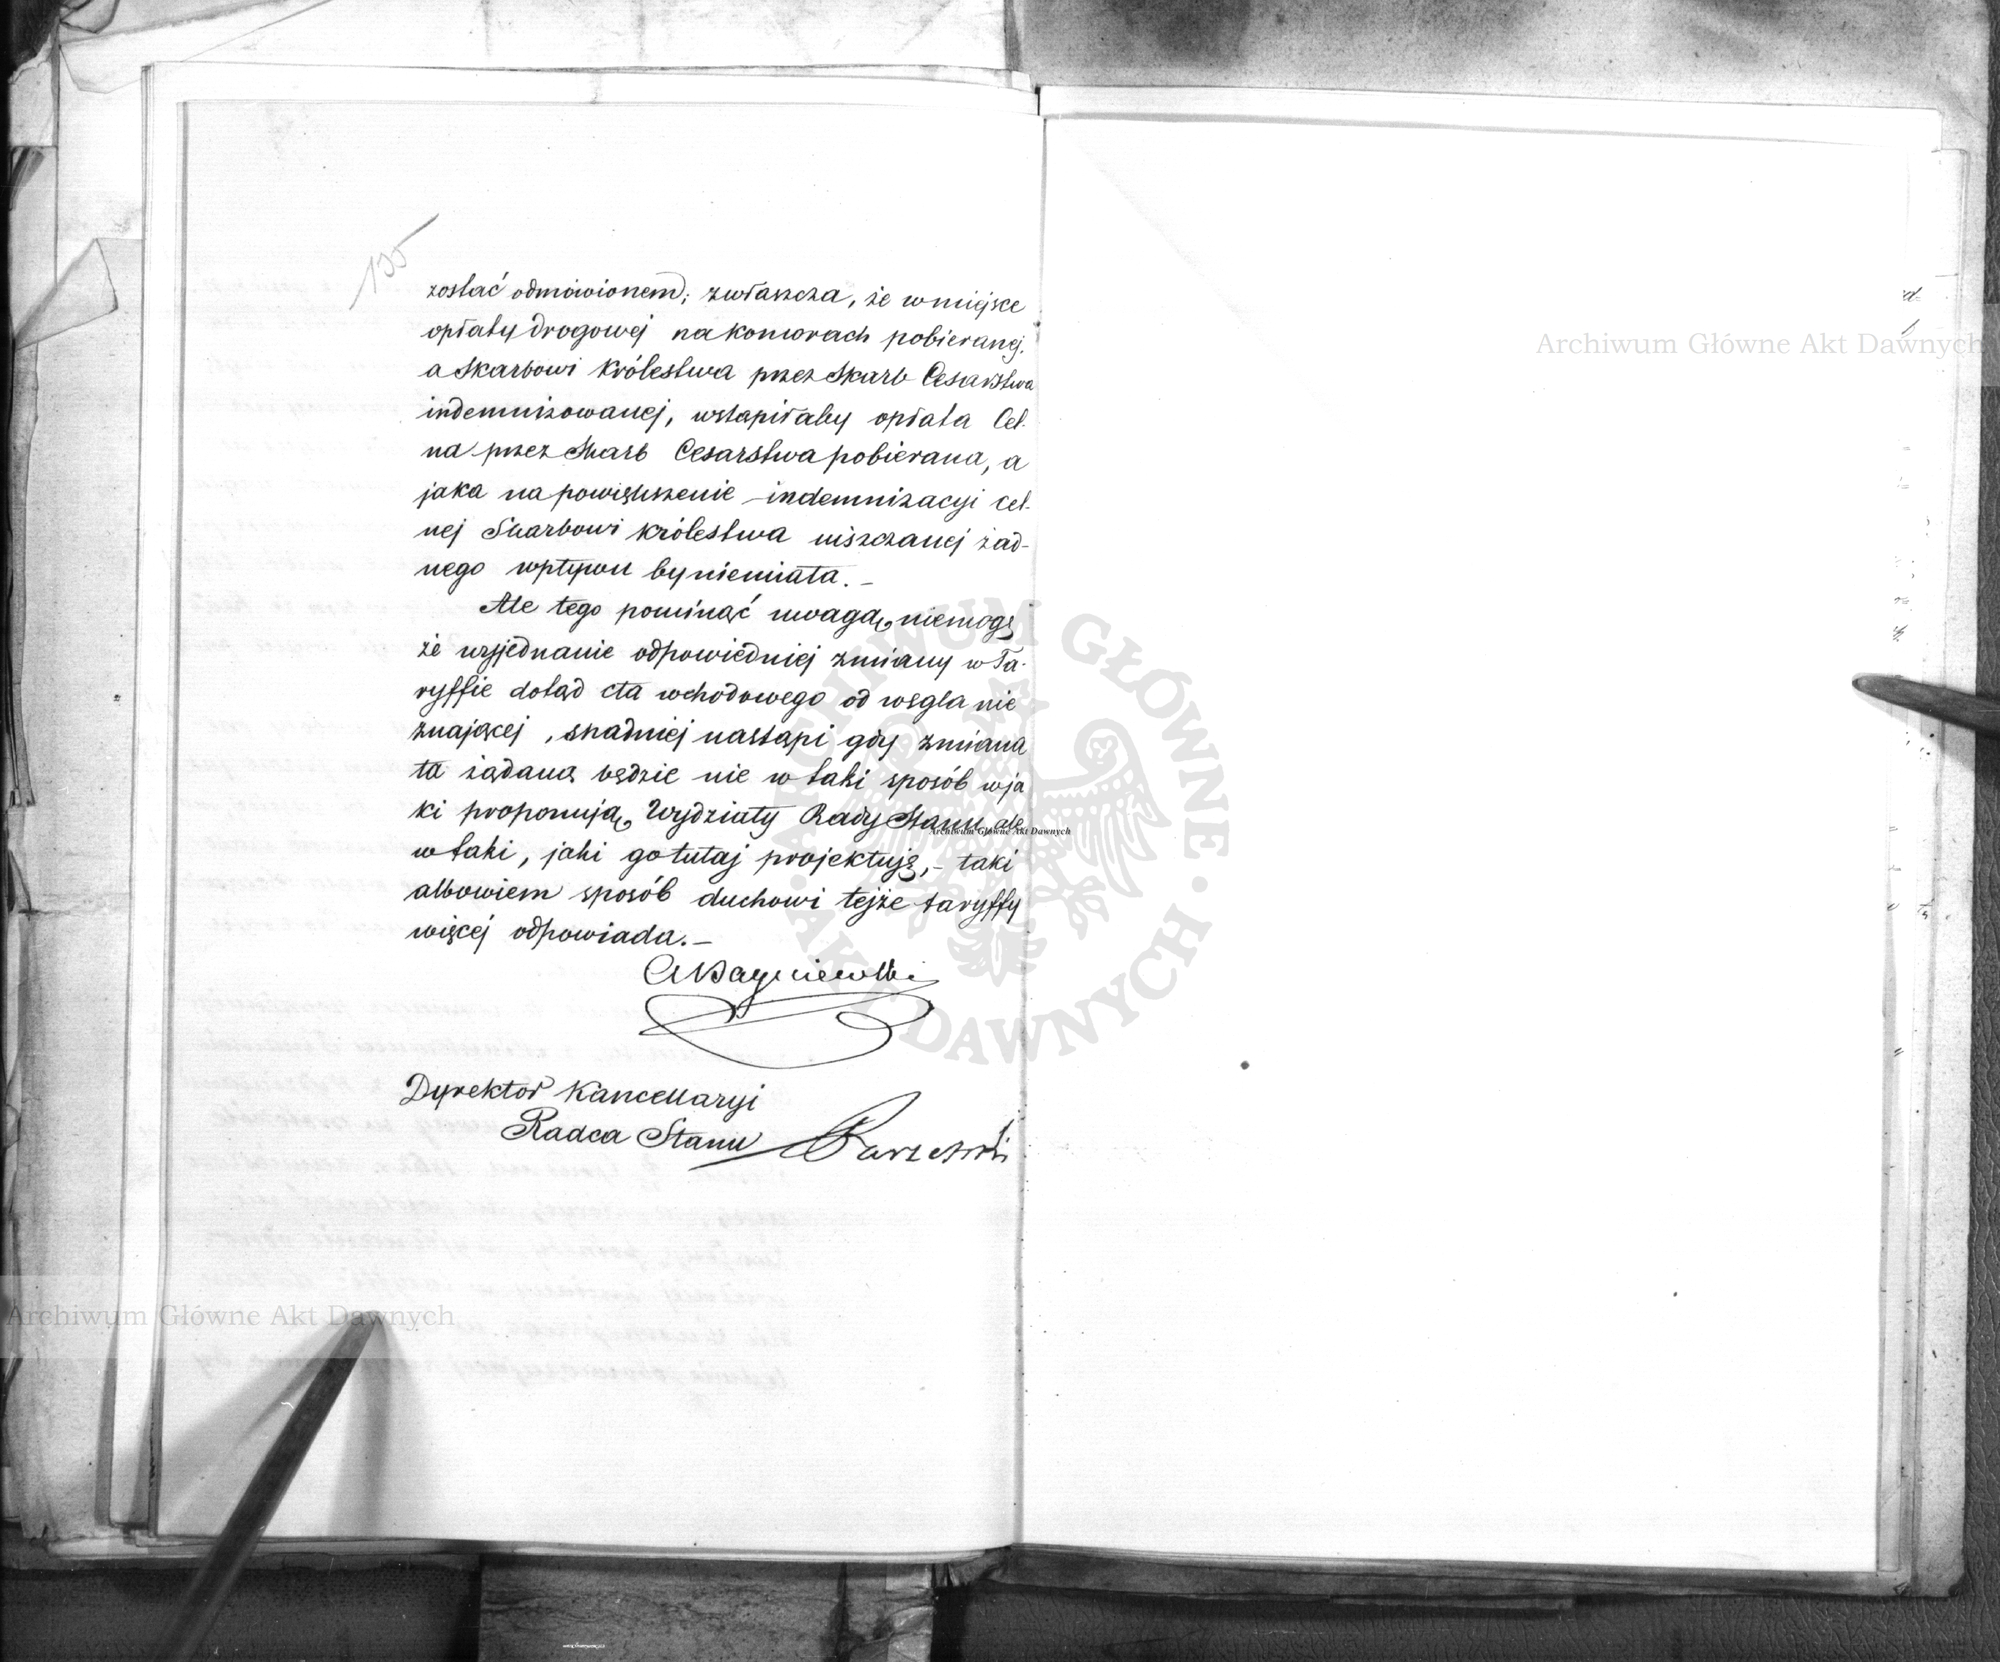 135
zostać odmówionem; zwłaszcza, że w miejsce
opłaty drogowej na komorach pobieranej,
a Skarbowi Królestwa przez Skarb Cesarstwa
indemnizowanej, wstąpiłaby opłata Cel-
na przez Skarb Cesarstwa pobierana, a
jaka na powiększenie indemnizacyi cel-
nej Skarbowi Królestwa uiszczanej żad-
nego wpływu by niemiała. –
Ale tego pominąć uwagą niemogę
że wyjednanie odpowiedniej zmiany w Ta-
ryffie dotąd cła wchodowego od węgla nie
znającej, snadniej nastąpi gdy zmiana
ta żądaną będzie nie w taki sposób w ja
ki proponują Wydziały Rady Stanu, ale
w taki, jaki go tutaj projektuję, – taki
albowiem sposób duchowi tejże taryffy
więcej odpowiada. –
Dyrektor Kancellaryi
Radca Stanu
Archiwum Główne Akt Dawnych
Archiwum Główne Akt Dawnych
Archiwum Główne Akt Dawnych
ARCHIWUM GŁÓWNE AKT DAWNYCH